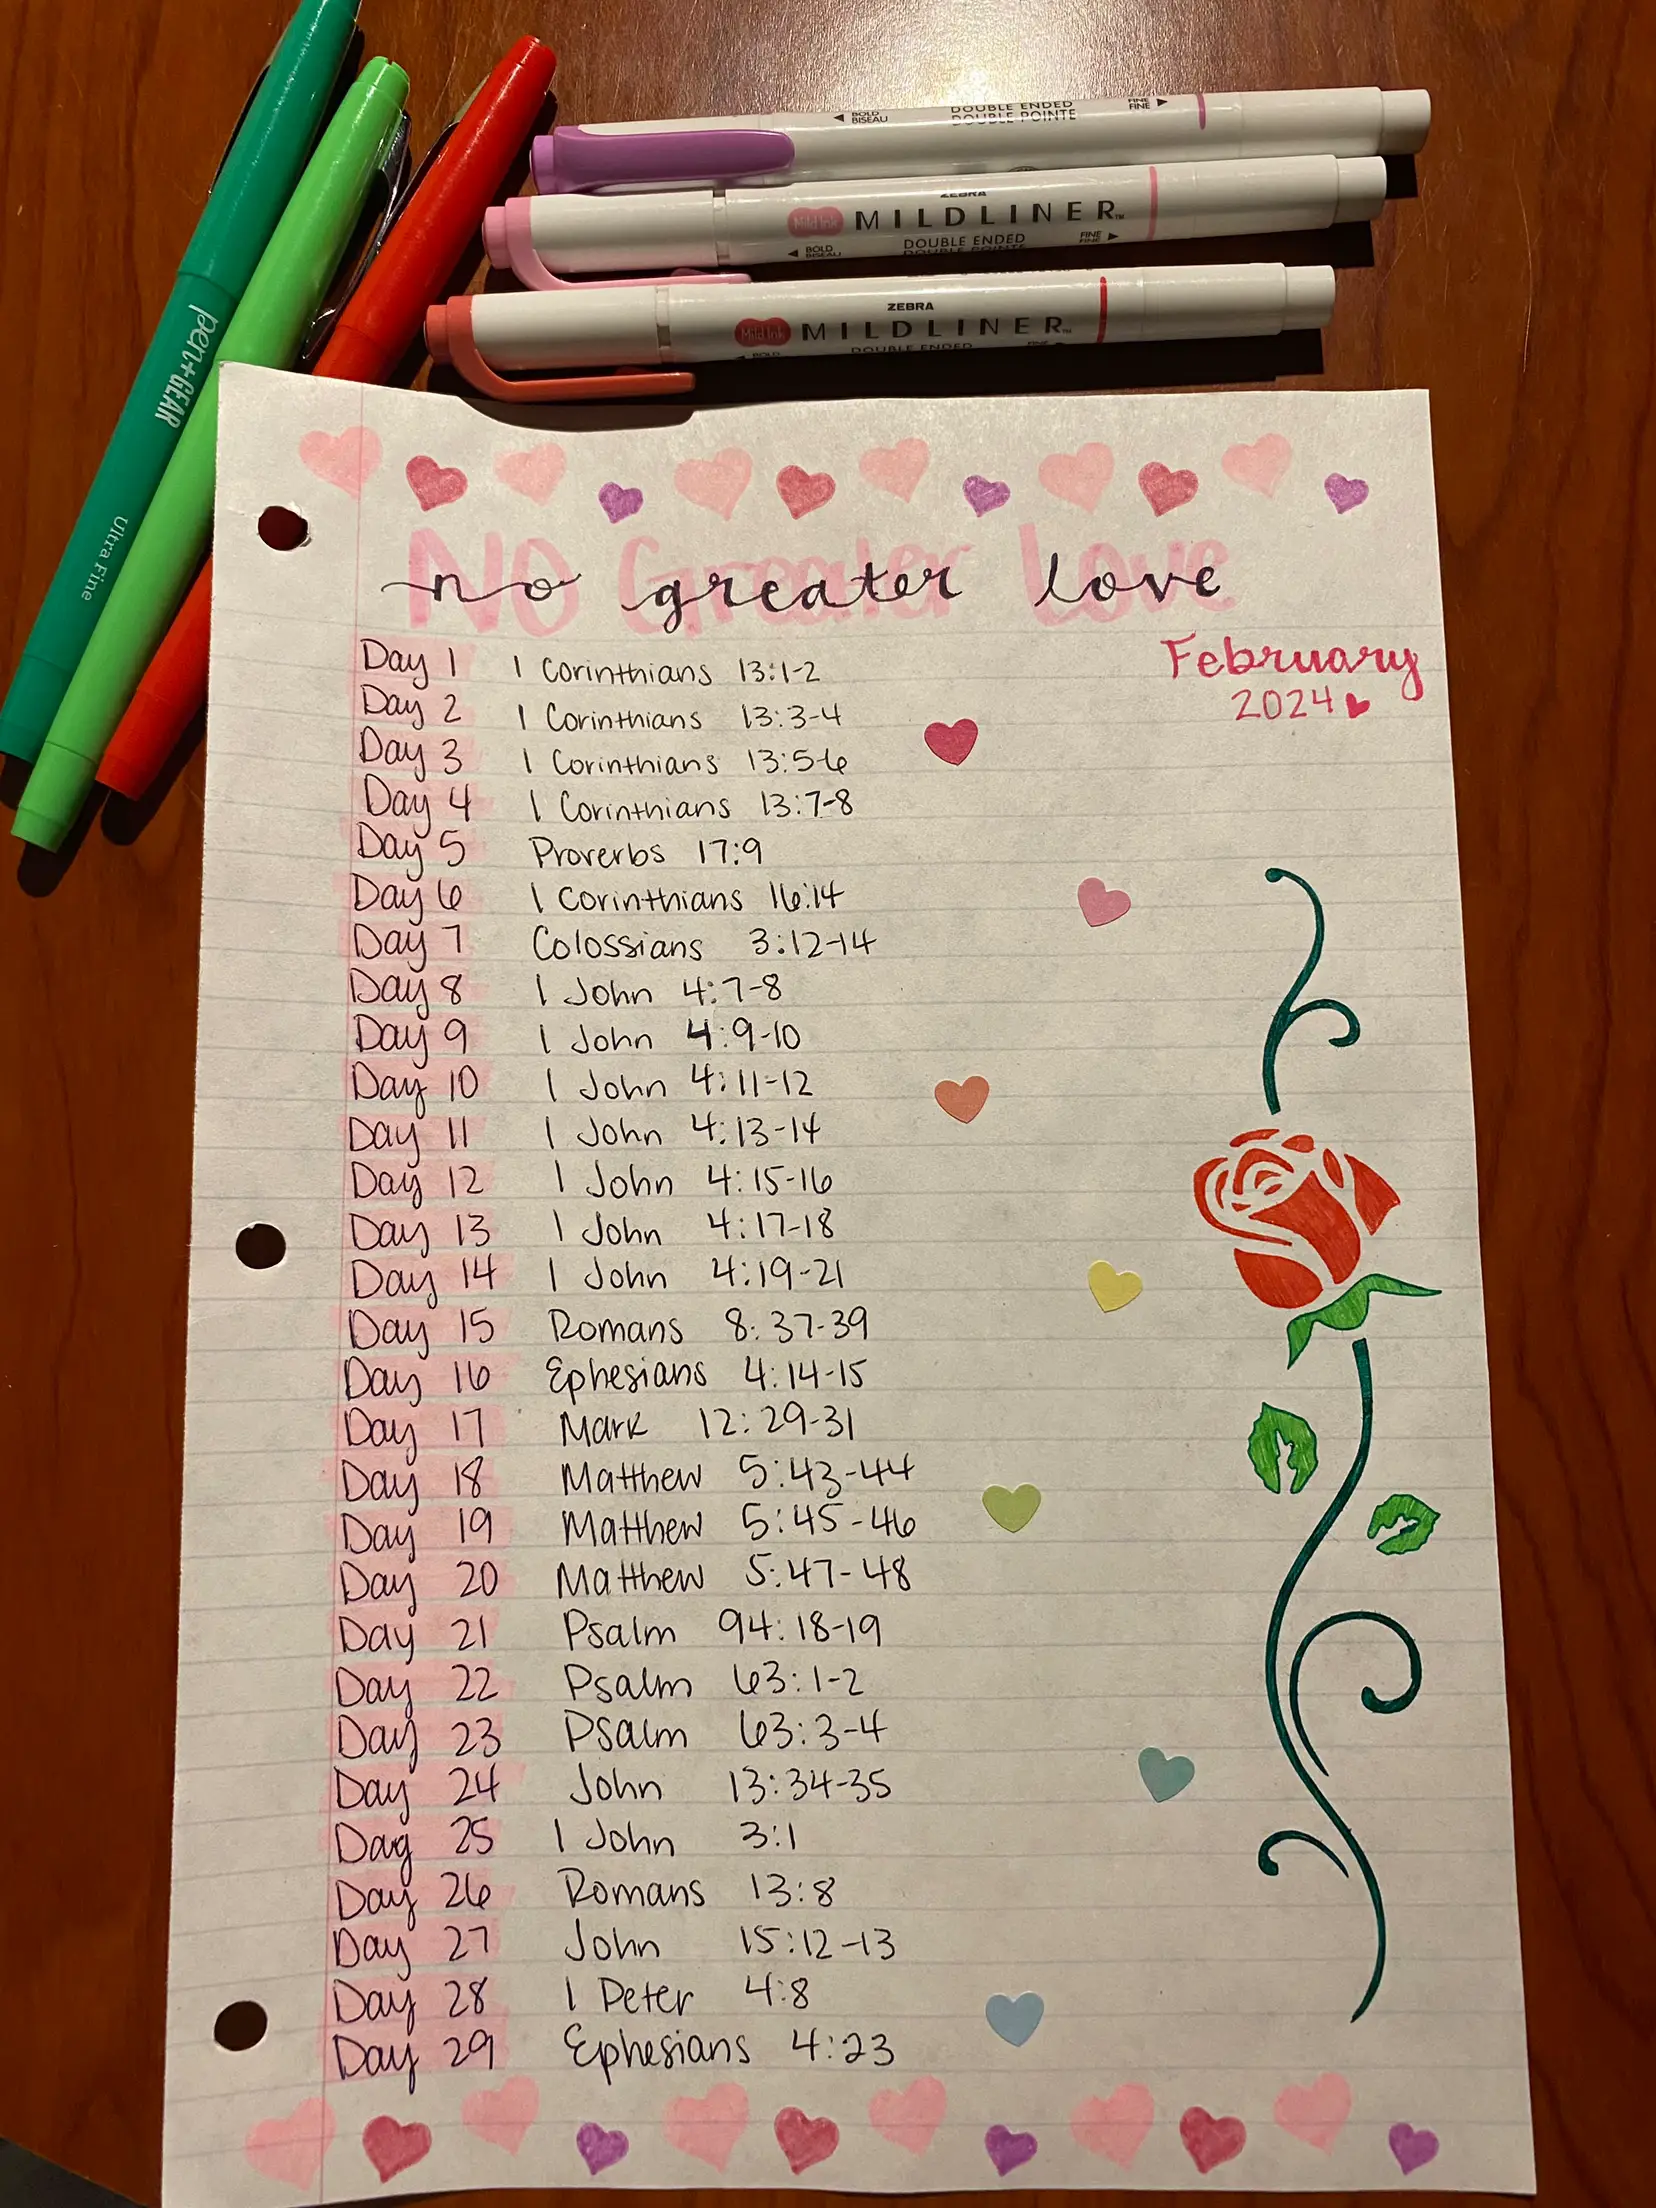 BOLD DOUBLE ENDED FINE
BISEAU DOUBLE POINTE FINE
ZEBRA
Mild Ink MILDLINER™
BOLD DOUBLE ENDED FINE
BISEAU DOUBLE POINTE FINE
ZEBRA
Mild Ink MILDLINER™
BOLD DOUBLE ENDED FINE
pen+GEAR
Ultra Fine
NO Greater Love
no greater love
February
2024
Day 1 1 Corinthians 13:1-2
Day 2 1 Corinthians 13:3-4
Day 3 1 Corinthians 13:5-6
Day 4 1 Corinthians 13:7-8
Day 5 Proverbs 17:9
Day 6 1 Corinthians 16:14
Day 7 Colossians 3:12-14
Day 8 1 John 4:7-8
Day 9 1 John 4:9-10
Day 10 1 John 4:11-12
Day 11 1 John 4:13-14
Day 12 1 John 4:15-16
Day 13 1 John 4:17-18
Day 14 1 John 4:19-21
Day 15 Romans 8:37-39
Day 16 Ephesians 4:14-15
Day 17 Mark 12:29-31
Day 18 Matthew 5:43-44
Day 19 Matthew 5:45-46
Day 20 Matthew 5:47-48
Day 21 Psalm 94:18-19
Day 22 Psalm 63:1-2
Day 23 Psalm 63:3-4
Day 24 John 13:34-35
Day 25 1 John 3:1
Day 26 Romans 13:8
Day 27 John 15:12-13
Day 28 1 Peter 4:8
Day 29 Ephesians 4:23